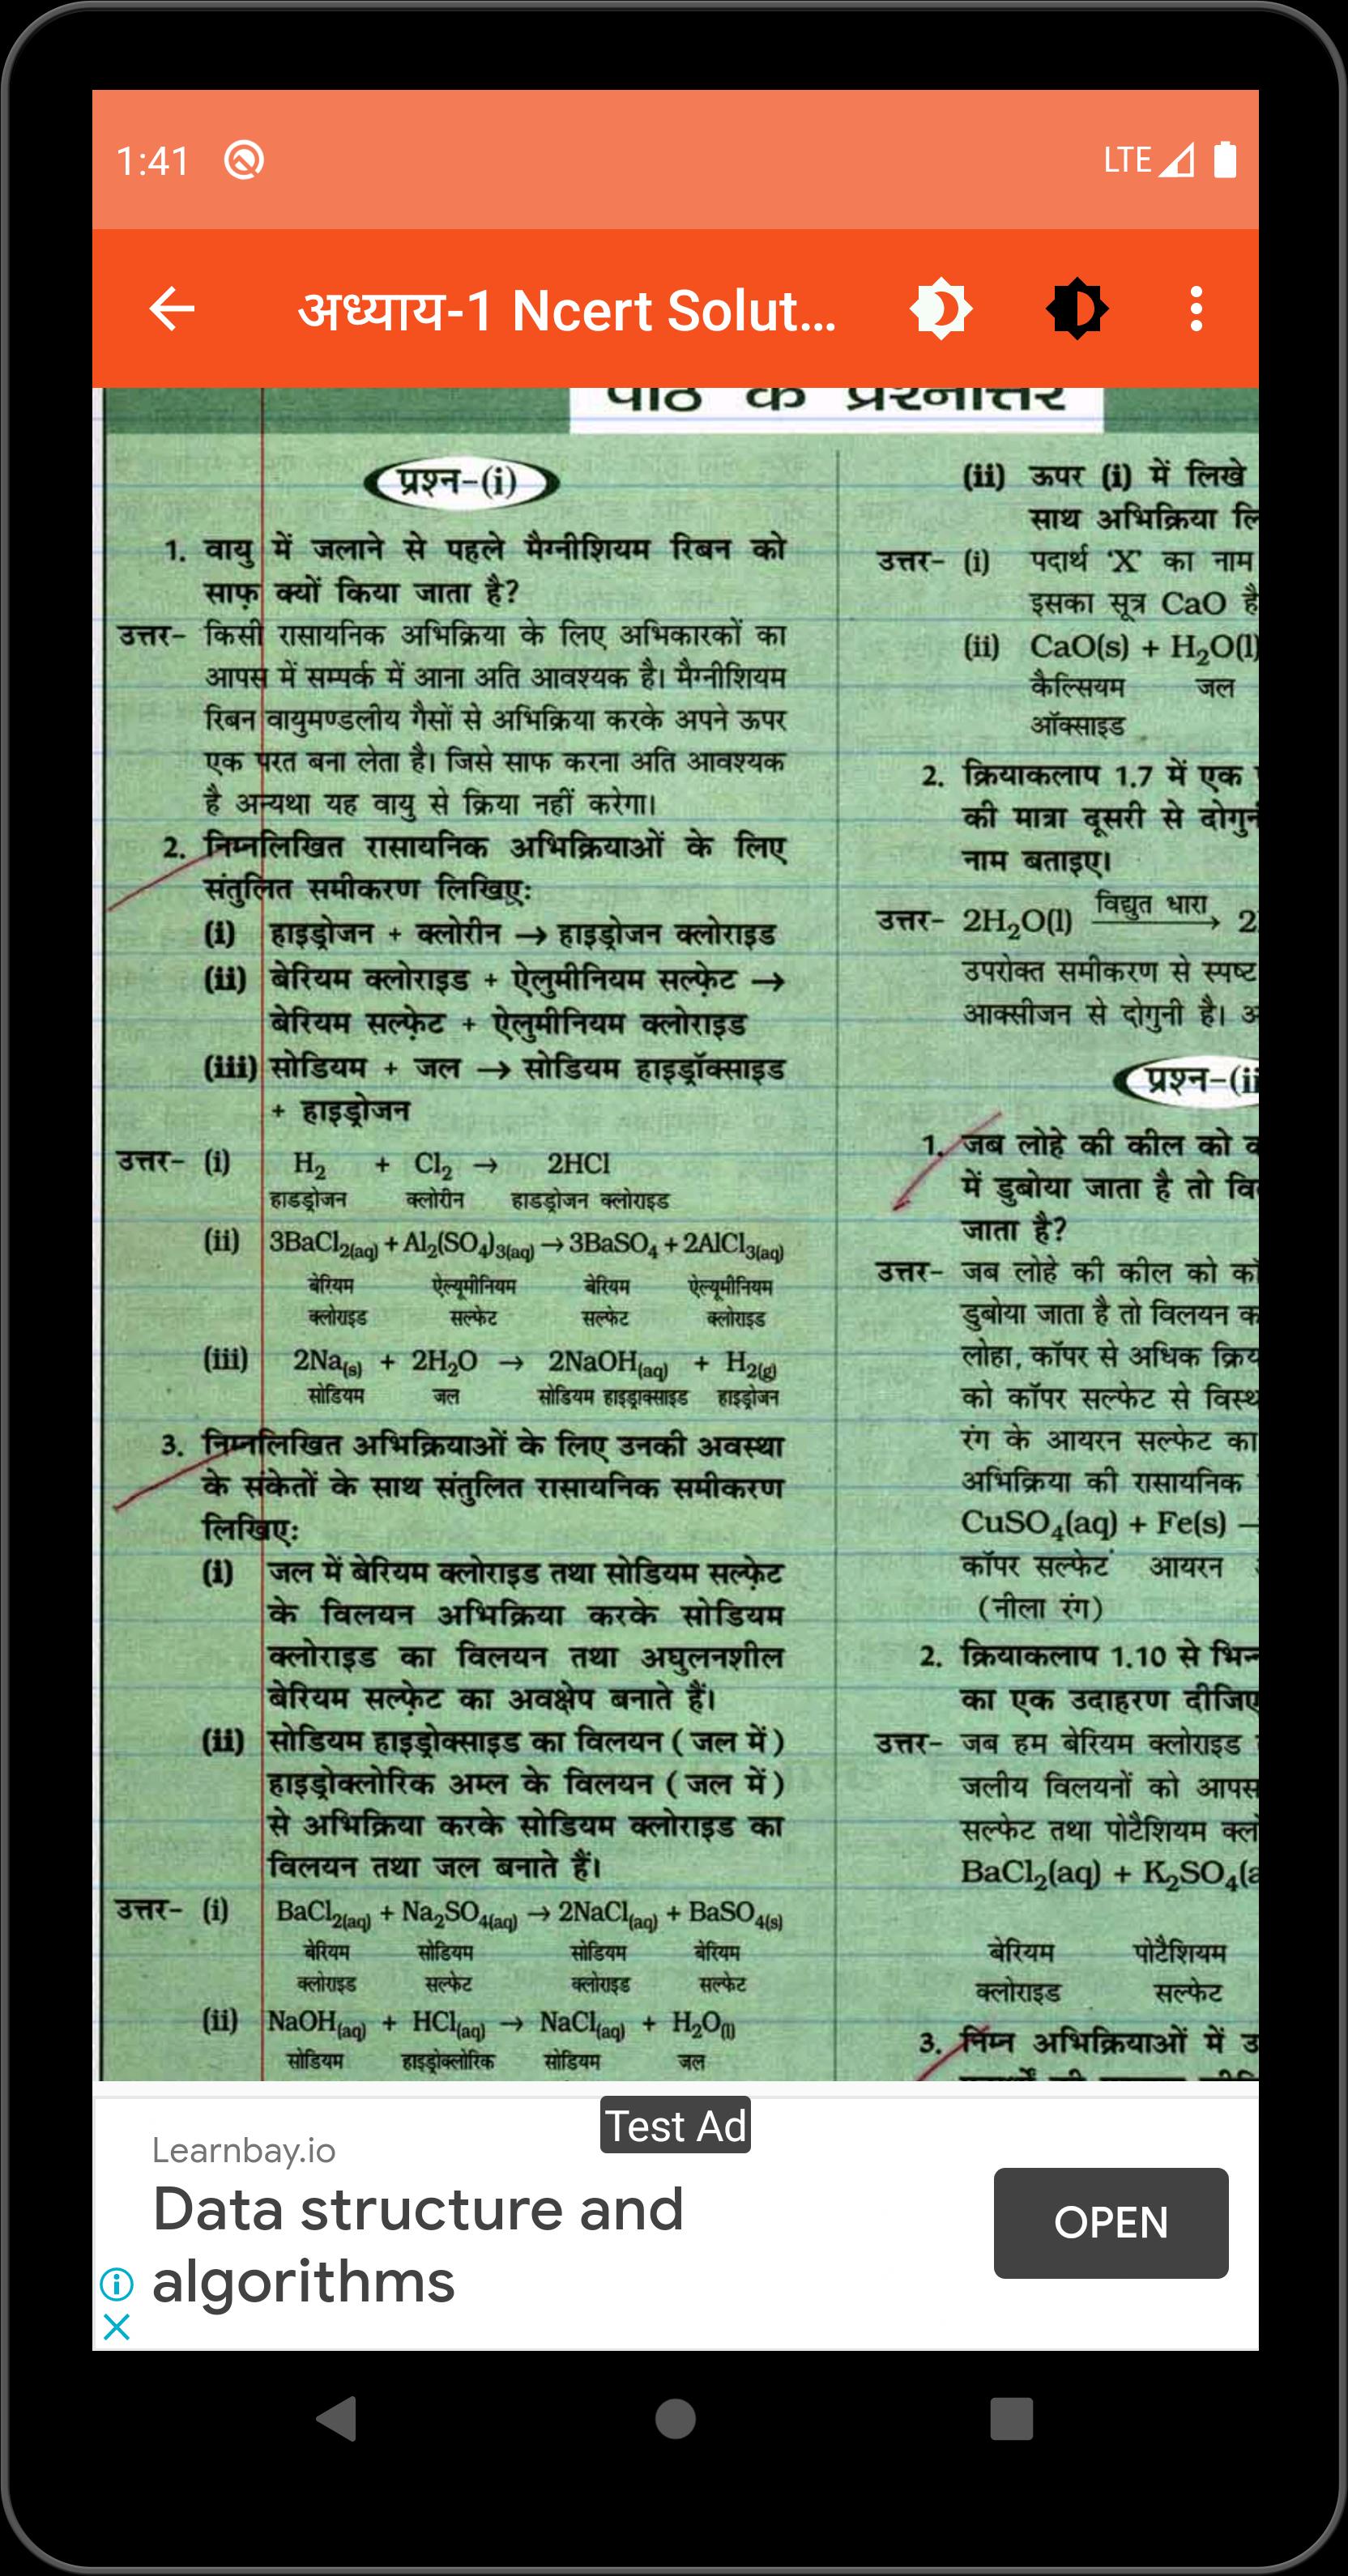 1:41
LTE
अध्याय-1 Ncert Solut...
पाठ के प्रश्नोत्तर
प्रश्न-(i)
1. वायु में जलाने से पहले मैग्नीशियम रिबन को
साफ़ क्यों किया जाता है?
उत्तर- किसी रासायनिक अभिक्रिया के लिए अभिकारकों का
आपस में सम्पर्क में आना अति आवश्यक है। मैग्नीशियम
रिबन वायुमण्डलीय गैसों से अभिक्रिया करके अपने ऊपर
एक परत बना लेता है। जिसे साफ करना अति आवश्यक
है अन्यथा यह वायु से क्रिया नहीं करेगा।
2. निम्नलिखित रासायनिक अभिक्रियाओं के लिए
संतुलित समीकरण लिखिए:
(i) हाइड्रोजन + क्लोरीन → हाइड्रोजन क्लोराइड
(ii) बेरियम क्लोराइड + ऐलुमीनियम सल्फ़ेट →
बेरियम सल्फ़ेट + ऐलुमीनियम क्लोराइड
(iii) सोडियम + जल → सोडियम हाइड्रॉक्साइड
+ हाइड्रोजन
उत्तर- (i) H₂ + Cl₂ → 2HCl
हाडड्रोजन क्लोरीन हाडड्रोजन क्लोराइड
(ii) 3BaCl₂(aq) + Al₂(SO₄)₃(aq) → 3BaSO₄ + 2AlCl₃(aq)
बेरियम ऐल्यूमीनियम बेरियम ऐल्यूमीनियम
क्लोराइड सल्फेट सल्फेट क्लोराइड
(iii) 2Na(s) + 2H₂O → 2NaOH(aq) + H₂(g)
सोडियम जल सोडियम हाइड्राक्साइड हाइड्रोजन
3. निम्नलिखित अभिक्रियाओं के लिए उनकी अवस्था
के संकेतों के साथ संतुलित रासायनिक समीकरण
लिखिए:
(i) जल में बेरियम क्लोराइड तथा सोडियम सल्फ़ेट
के विलयन अभिक्रिया करके सोडियम
क्लोराइड का विलयन तथा अघुलनशील
बेरियम सल्फ़ेट का अवक्षेप बनाते हैं।
(ii) सोडियम हाइड्रोक्साइड का विलयन (जल में)
हाइड्रोक्लोरिक अम्ल के विलयन (जल में)
से अभिक्रिया करके सोडियम क्लोराइड का
विलयन तथा जल बनाते हैं।
उत्तर- (i) BaCl₂(aq) + Na₂SO₄(aq) → 2NaCl(aq) + BaSO₄(s)
बेरियम सोडियम सोडियम बेरियम
क्लोराइड सल्फेट क्लोराइड सल्फेट
(ii) NaOH(aq) + HCl(aq) → NaCl(aq) + H₂O(l)
सोडियम हाइड्रोक्लोरिक सोडियम जल
(ii) ऊपर (i) में लिखे
साथ अभिक्रिया
उत्तर- (i) पदार्थ 'X' का नाम
इसका सूत्र CaO है
(ii) CaO(s) + H₂O(l)
कैल्सियम जल
ऑक्साइड
2. क्रियाकलाप 1.7 में एक
की मात्रा दूसरी से
नाम बताइए।
उत्तर- 2H₂O(l) विद्युत धारा → 2
उपरोक्त समीकरण से स्पष्ट
आक्सीजन से दोगुनी है।
प्रश्न-(ii
1. जब लोहे की कील को
में डुबोया जाता है तो
जाता है?
उत्तर- जब लोहे की कील को
डुबोया जाता है तो विलयन
लोहा, कॉपर से अधिक
को कॉपर सल्फेट से
रंग के आयरन सल्फेट का
अभिक्रिया की रासायनिक
CuSO₄(aq) + Fe(s)
कॉपर सल्फेट आयरन
(नीला रंग)
2. क्रियाकलाप 1.10 से
का एक उदाहरण
उत्तर- जब हम बेरियम क्लोराइड
जलीय विलयनों को आपस
सल्फेट तथा पोटैशियम
BaCl₂(aq) + K₂SO₄
बेरियम पोटैशियम
क्लोराइड सल्फेट
3. निम्न अभिक्रियाओं में
Test Ad
Learnbay.io
Data structure and
algorithms
OPEN